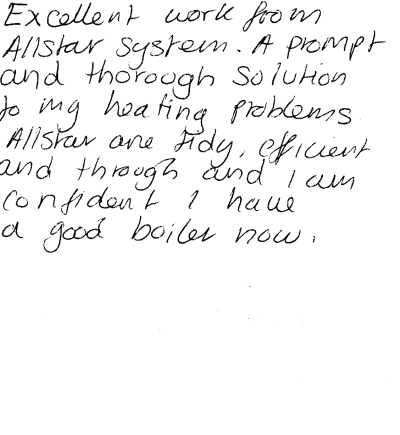 Excellent work from
Allstar System. A prompt
and thorough solution
to my heating problems
Allstar are tidy, efficient
and through and I am
confident I have
a good boiler now.